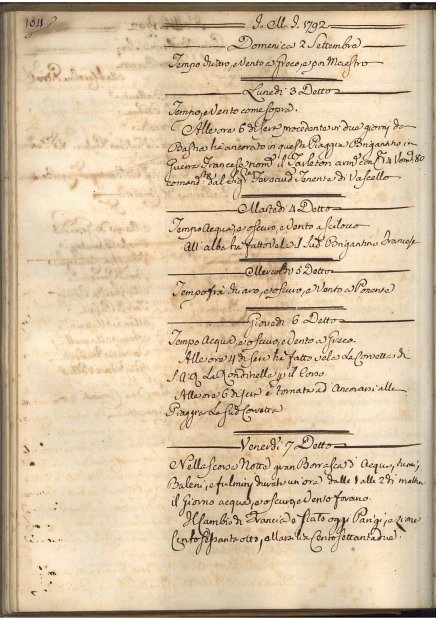 1011
J. M. J. 1792
Domenica 2 Settembre
Tempo chiaro, e Vento a Greco, e poi Maestro
Lunedi 3 Detto
Tempo, e Vento come sopra.
Alle ore 6 di sera procedente in due giorni da
Bastia hà ancorato in questa Piaggia Brigantino in
Guerra Francese nom.to il Tarleton arm.to con 14
Tenente di Vascello
Martedi 4 Detto
Tempo Acqua, e oscuro, e Vento a Scilocco
All'alba hà fatto vela il sud.o Brigantino Francese
Mercoldi 5 Detto
Tempo frà chiaro, e oscuro, e Vento a Ponente
Giovedi 6 Detto
Tempo Acqua, e oscuro, e Vento a Greco.
Alle ore 4 di sera hà fatto vela La Corvetta di
S.A.R. La Rondinella p il Corso
Alle ore 6 di sera è tornata ad Ancorarsi alla
Piaggia La sud.a Corvetta
Venerdi 7 Detto
Nella scorsa Notte gran Borrasca d'Acqua, tuoni,
Baleni, e fulmini durata un ora dalle 1 alle 2 di mattina
il Giorno acqua, e oscuro, e Vento
Il Cambio di Francia è stato oggi Parigi,
Cento settantadue.